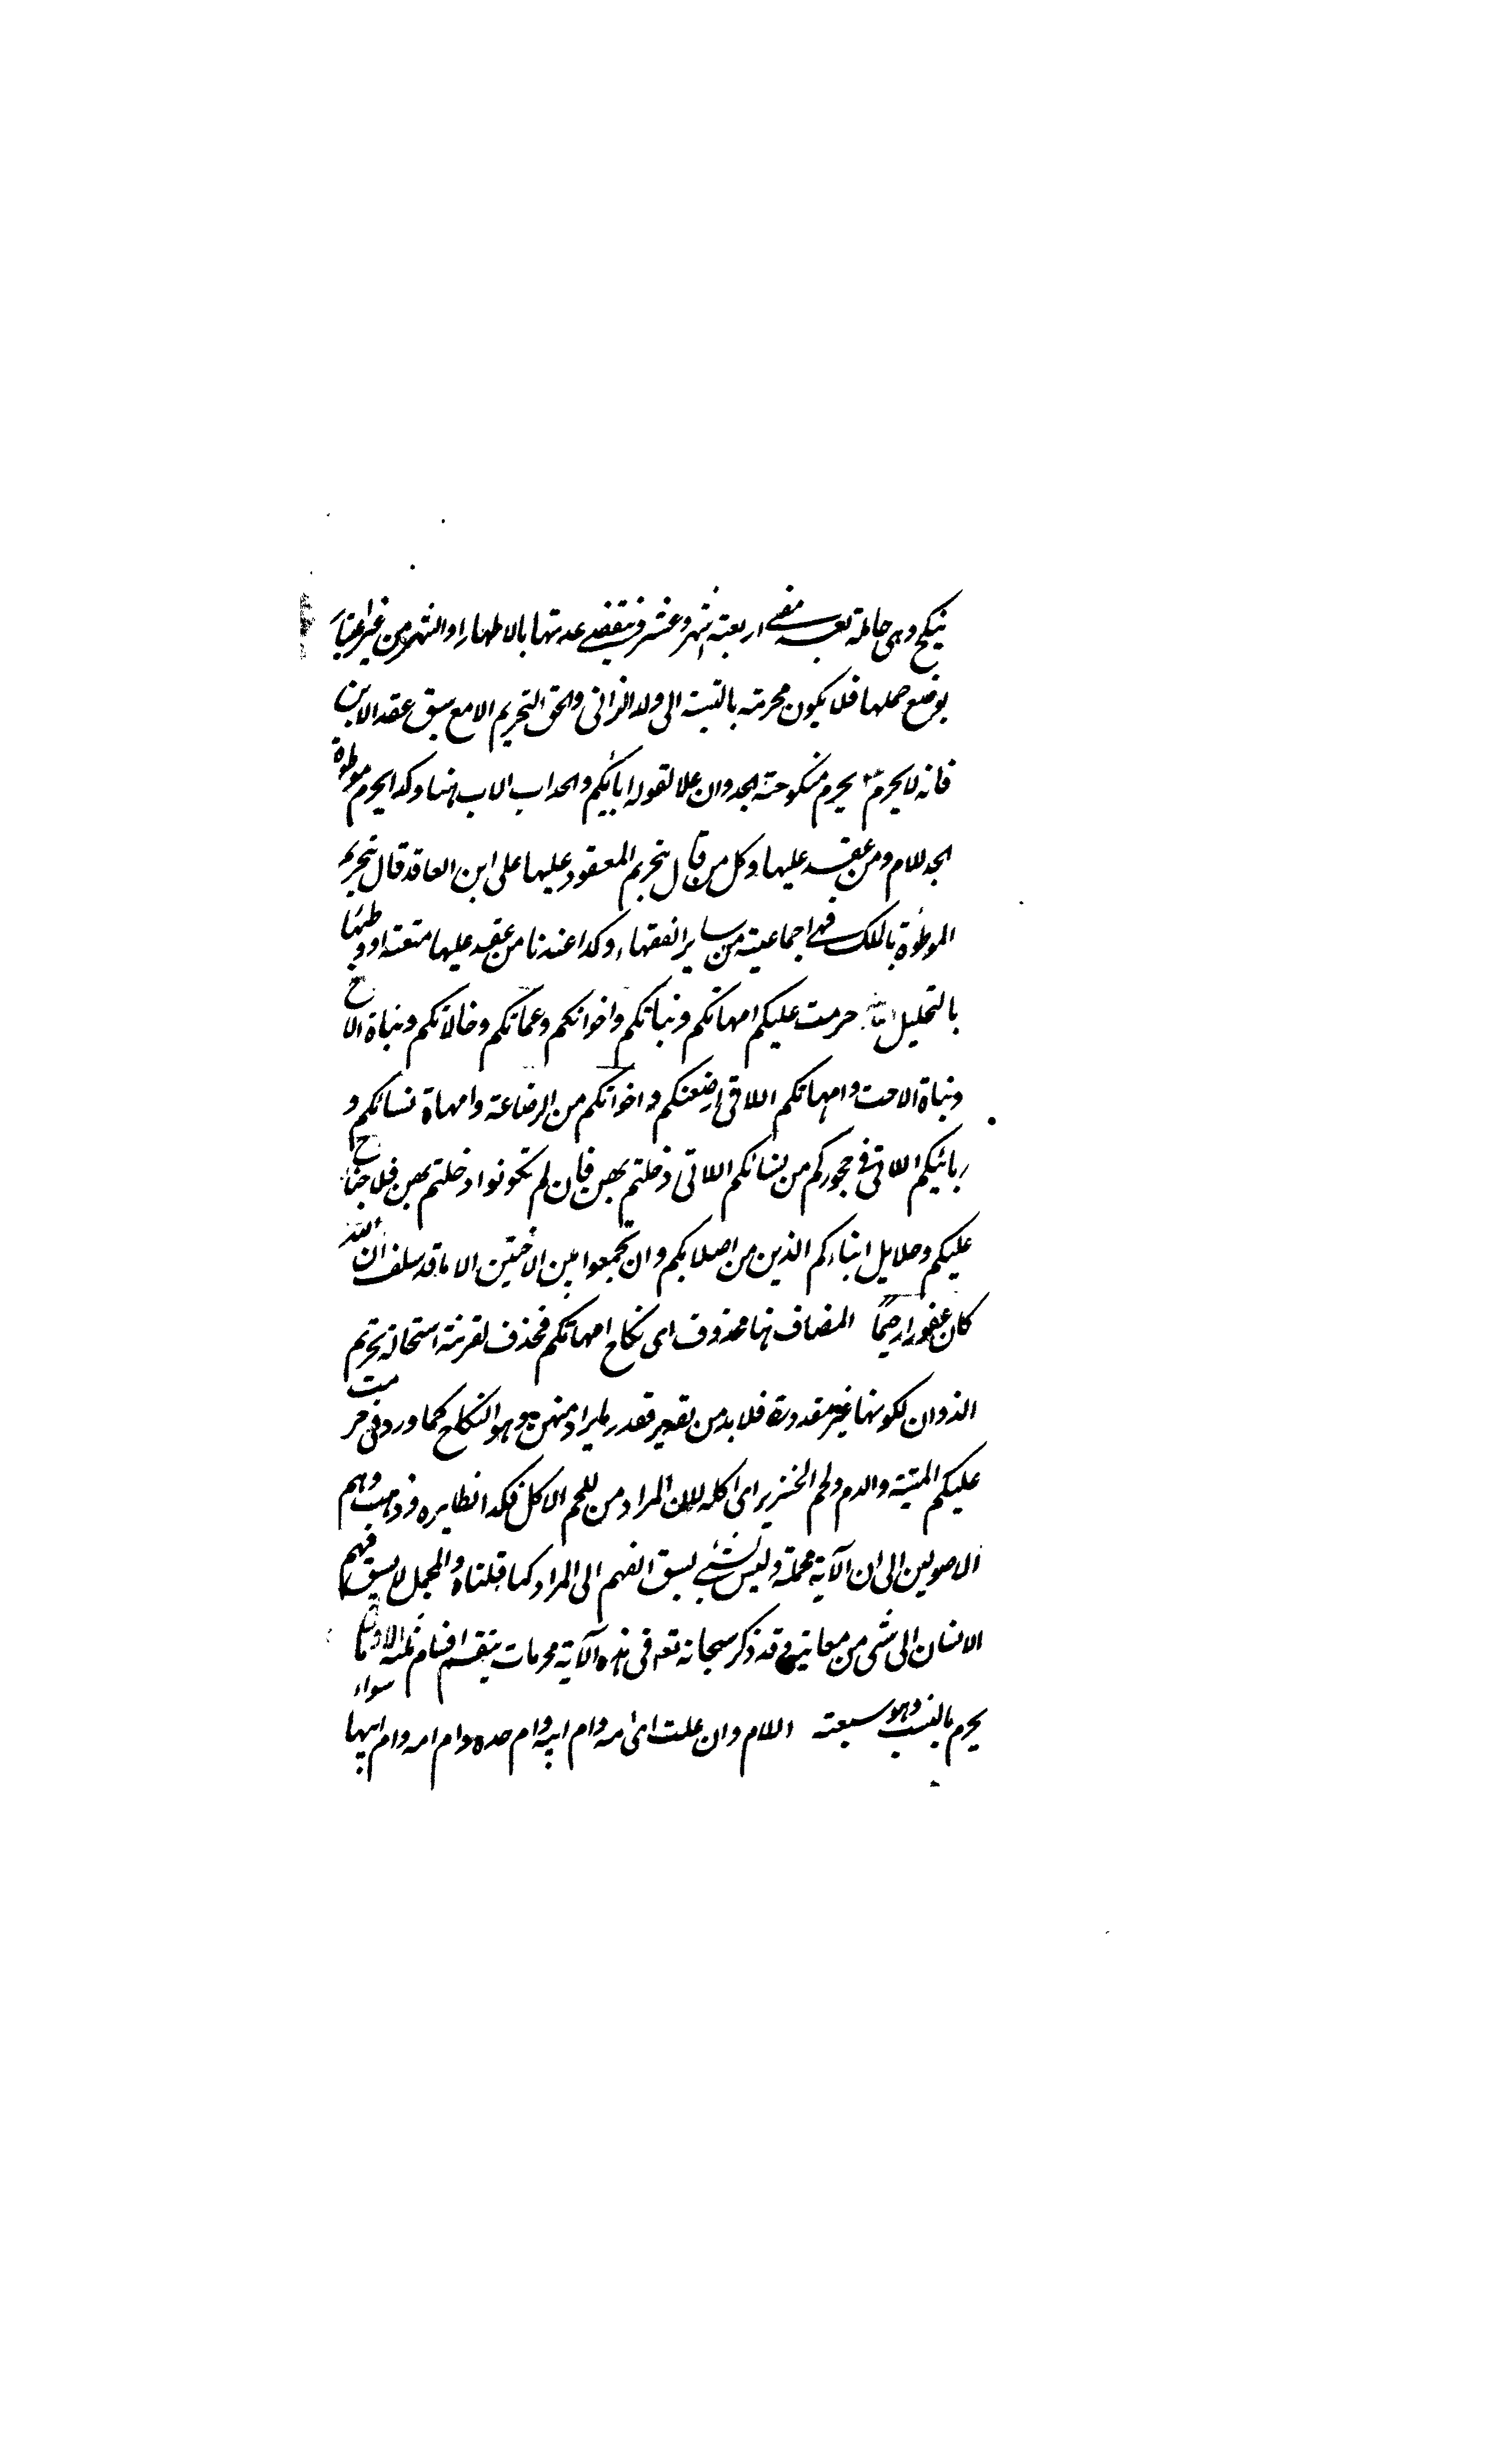 ينكح وهى حاملة بعد مضى اربعة اشهر وعشر فينقضى عدتها بالاطهار او الشهر من غير اعتبار
بوضع حملها فلا يكون محرمته بالنسبة الى ولد الزانى والحق التحريم الا مع سبق عقد الابن
فانه لا يحرم يحرم منكوحة الجد وان علا لقوله ابائكم والجد اب الاب هنا وكذا يحرم موطوة
الجد للام ومن عقد عليها وكل من قال بتحريم المعقود عليها على ابن العاقد قال بتحريم
الموطوة بالملك فهى اجماعية من ساير الفقهاء وكذا عندنا من عقد عليها متعته او وطئها
بالتحليل حرمت عليكم امهاتكم وبناتكم واخواتكم وعماتكم وخالاتكم وبناة الاخ
وبناة الاخت وامهاتكم اللاتى ارضعنكم واخواتكم من الرضاعة وامهاة نسائكم و
ربائبكم اللاتى فى حجوركم من نسائكم اللاتى دخلتم بهن فان لم تكونوا دخلتم بهن فلا جناح
عليكم وحلايل ابناءكم الذين من اصلابكم وان تجمعوا بين الاختين الا ما قد سلف ان الله
كان غفورا رحيما المضاف هنا محذوف اى نكاح امهاتكم فحذف لقرينة استحالة تحريم
الذوات لكونها غير مقدورة فلا بد من تقدير فقدر ما يراد منهن وهو النكاح كما ورد فى حرمت
عليكم الميتة والدم ولحم الخنزير اى اكله لان المراد من اللحم الاكل فكذا نظايره وذهب وهم
الاصولين الى ان الآية مجملة وليس بشئ لسبق الفهم الى المراد كما قلناه والمجمل لا يسبق فهم
الانسان الى شى من معانيه وقد ذكر سبحانه تعه فى هذه الآية محرمات ينقسم اقسام ثلثه الاول ما
يحرم بالنسب وهو سبعته اللام وان علت اى امه وام ابيه وام جده وام امه وام ابيها سواء